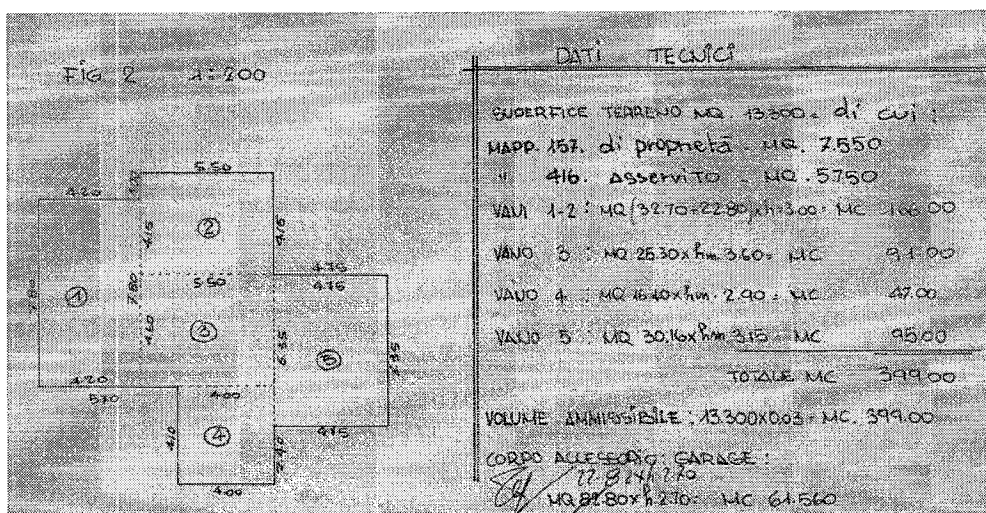 FIG 2 1:200
5.50
4.20
4.15
②
4.15
5.50
4.75
4.75
①
7.80
7.80
③
4.60
6.35
⑤
4.20
5.70
4.00
4.10
④
4.75
2.40
4.00
DATI TECNICI
SUPERFICE TERRENO MQ. 13.300 = di cui :
MAPP. 157. di proprietà . MQ. 7.550
" 416. Asservito . MQ. 5750
VANI 1-2 : MQ (32.70+22.80) x h=3.00 = MC
VANO 3 : MQ 25.30 x hm 3.60 = MC 91.00
VANO 4 : MQ 16.40 x hm. 2.90 = MC 47.00
VANO 5 : MQ 30.16 x hm 3.15 = MC 95.00
TOTALE MC 399.00
VOLUME AMMISSIBILE : 13.300x0.03 = MC. 399.00
CORPO ACCESSORIO : GARAGE :
22.82xh 2.70
MQ 82.80 x h 2.70 = MC 61.560